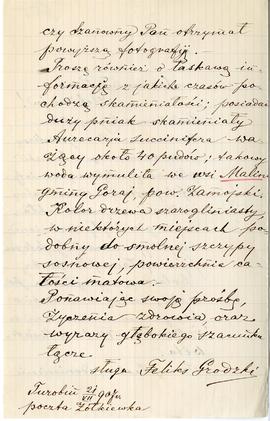 czy Szanowny Pan otrzymał
powyższą fotografję.
Proszę również o łaskawą in-
formację z jakich czasów po-
chodzą skamieniałości; posiadam
duży pniak skamieniały
Aurecazia succinifera wa-
żący około 40 pudów; takowy
woda wymuliła we wsi Malin
gminy Goraj, pow. Zamojski.
Kolor drzewa szarogliniasty
w niektórych miejscach po-
dobny do smolnej szczypy
sosnowej, powierzchnia ca-
łości matowa.
Ponawiając swoją prośbę,
życzenia zdrowia, oraz
wyrazy głębokiego szacunku
łączę
sługa Feliks Grodzki
Turobin 21/VII 907r
poczta Żółkiewka